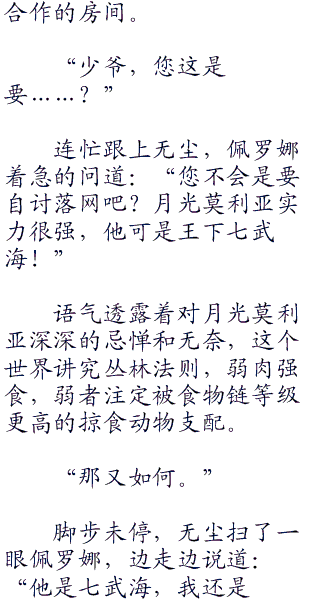 合作的房间。
“少爷，您这是
要……？”
连忙跟上无尘，佩罗娜
着急的问道：“您不会是要
自讨落网吧？月光莫利亚实
力很强，他可是王下七武
海！”
语气透露着对月光莫利
亚深深的忌惮和无奈，这个
世界讲究丛林法则，弱肉强
食，弱者注定被食物链等级
更高的掠食动物支配。
“那又如何。”
脚步未停，无尘扫了一
眼佩罗娜，边走边说道：
“他是七武海，我还是